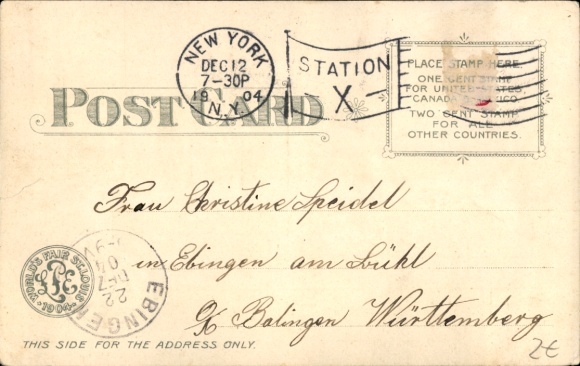 NEW YORK
DEC 12
7-30P
19 04
N.Y.
STATION
X
POST CARD
PLACE STAMP HERE.
ONE CENT STAMP
FOR UNITED STATES,
CANADA & MEXICO
TWO CENT STAMP
FOR ALL
OTHER COUNTRIES.
Frau Christine Speidel
in Ebingen am Bühl
Balingen Württemberg
WORLD'S FAIR ST. LOUIS
1904
EBINGEN
22
DEZ
04
THIS SIDE FOR THE ADDRESS ONLY.
2€